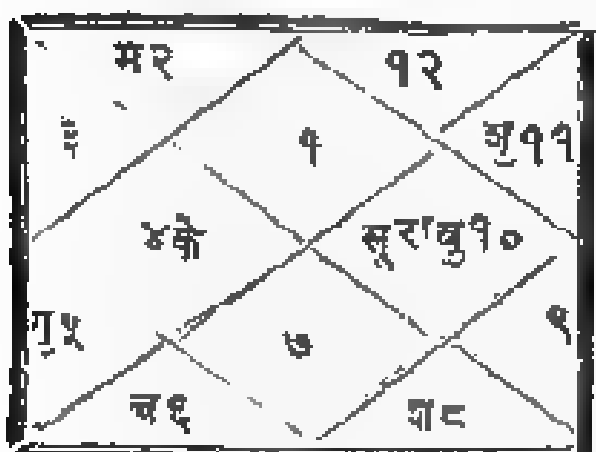 मं२
१२
३
१
शु११
४के
सूरा बु१०
गु५
७
९
च६
श८